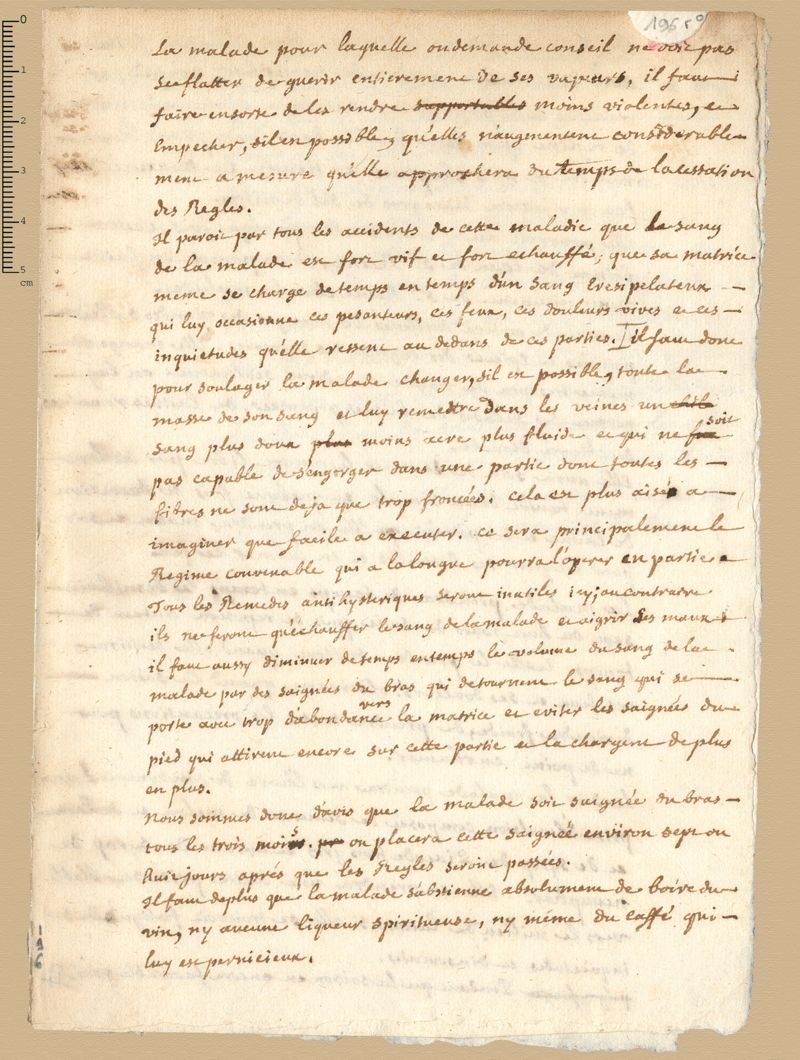 196 r°
La malade pour laquelle on demande conseil ne doit pas
se flatter de guerir entierement de ses vapeurs, il faut
faire ensorte de les rendre supportables moins violentes, et
Empecher, s'il en possible, qu'elles n'augmentent considerable
ment a mesure qu'elle approchera du temps de la cessation
des Regles.
Il paroit par tous les accidents de cette maladie que le sang
de la malade est fort vif et fort echauffé; que sa matrice
meme se charge de temps en temps d'un sang Eresipelateux
qui luy occasionne ces pesanteurs, ces feux, ces douleurs vives et ces
inquietudes qu'elle ressent au dedans de ces parties. il faut donc
pour soulager la malade changer, s'il est possible, toute la
masse de son sang et luy remettre dans les veines un
soit
sang plus doux plus moins acre plus fluide et qui ne
pas capable de s'engorger dans une partie dont toutes les
fibres ne sont deja que trop froncées. Cela est plus aisé a
imaginer que facile a executer. ce sera principalement le
Regime convenable qui a la longue pourra l'operer en partie
Tous les Remedes antihysteriques seront inutiles icy; au contraire
ils ne feront qu'echauffer le sang de la malade et aigrir ses maux
il faut aussy diminuer de temps en temps le volume du sang de la
malade par des saignées du bras qui detournent le sang qui se
vers
porte avec trop d'abondance la matrice et eviter les saignées du
pied qui attirent encore sur cette partie et la chargent de plus
en plus.
Nous sommes donc d'avis que la malade soit saignée du bras
tous les trois mois. on placera cette saignée environ sept ou
huit jours aprés que les Regles seront passées.
Il faut deplus que la malade s'abstienne absolument de boire du
vin, ny aucune liqueur spiritueuse, ny même du caffé qui
luy est pernicieux.
0
1
2
3
4
5
cm